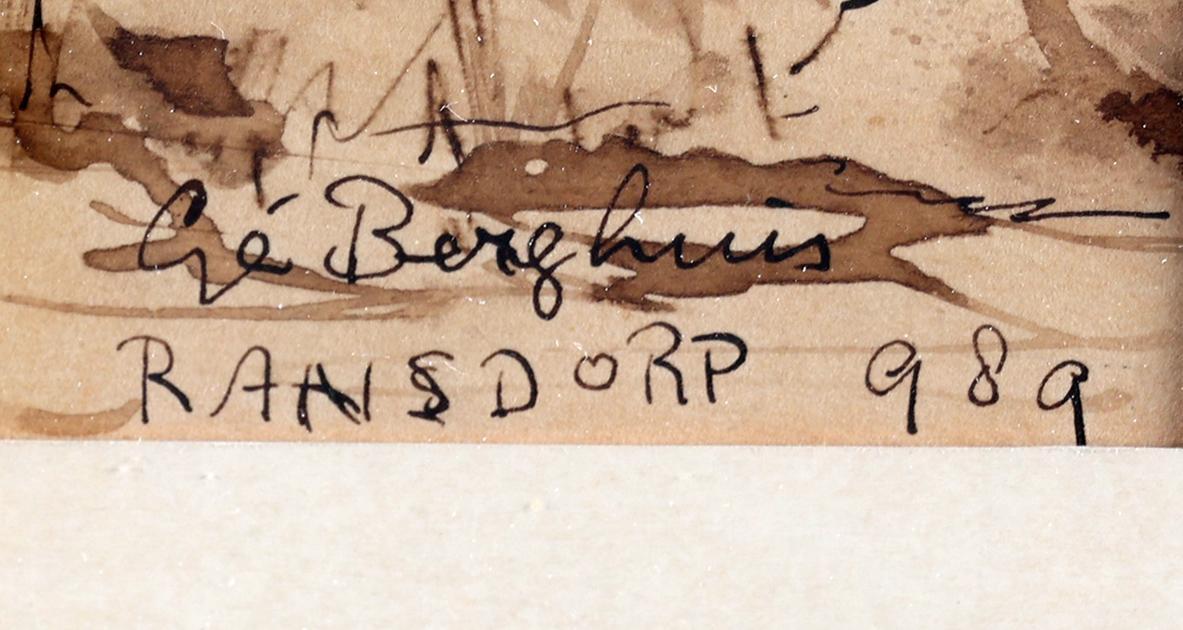 Gé Berghuis
RANSDORP 989